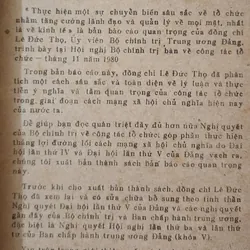 "Thực hiện một sự chuyển biến sâu sắc về tổ chức
nhằm tăng cường lãnh đạo và quản lý về mọi mặt, nhất
là về kinh tế» là bản báo cáo quan trọng của đồng chí
Lê Đức Thọ, Ủy viên Bộ Chính trị Trung ương Đảng,
trình bày tại Hội nghị Bộ Chính trị bàn về công tác tổ
chức — tháng 11 năm 1980
Trong bản báo cáo này, đồng chí Lê Đức Thọ đã phân
tích một cách sâu sắc và toàn diện về lý luận và thực
tiễn ý nghĩa và tầm quan trọng của công tác tổ chức
trong giai đoạn cách mạng xã hội chủ nghĩa hiện nay
của nước ta.
Để giúp bạn đọc quán triệt đầy đủ hơn nữa Nghị quyết
của Bộ chính trị về công tác tổ chức, góp phần thực hiện
thắng lợi đường lối cách mạng xã hội chủ nghĩa do Đại
hội lần thứ IV và Đại hội lần thứ V của Đảng vạch ra,
chúng tôi xuất bản thành sách bản báo cáo quan trọng
này.
Trước khi cho xuất bản thành sách, đồng chí Lê Đức
Thọ đã xem lại và có sửa chữa bổ sung theo tinh thần
Nghị quyết Đại hội lần thứ V của Đảng và các nghị quyết
gần đây của Bộ chính trị và Ban chấp hành trung ương,
đặc biệt là Nghị quyết Hội nghị lần thứ ba và lần thứ
tư của Ban chấp hành trung ương Đảng khóa V.